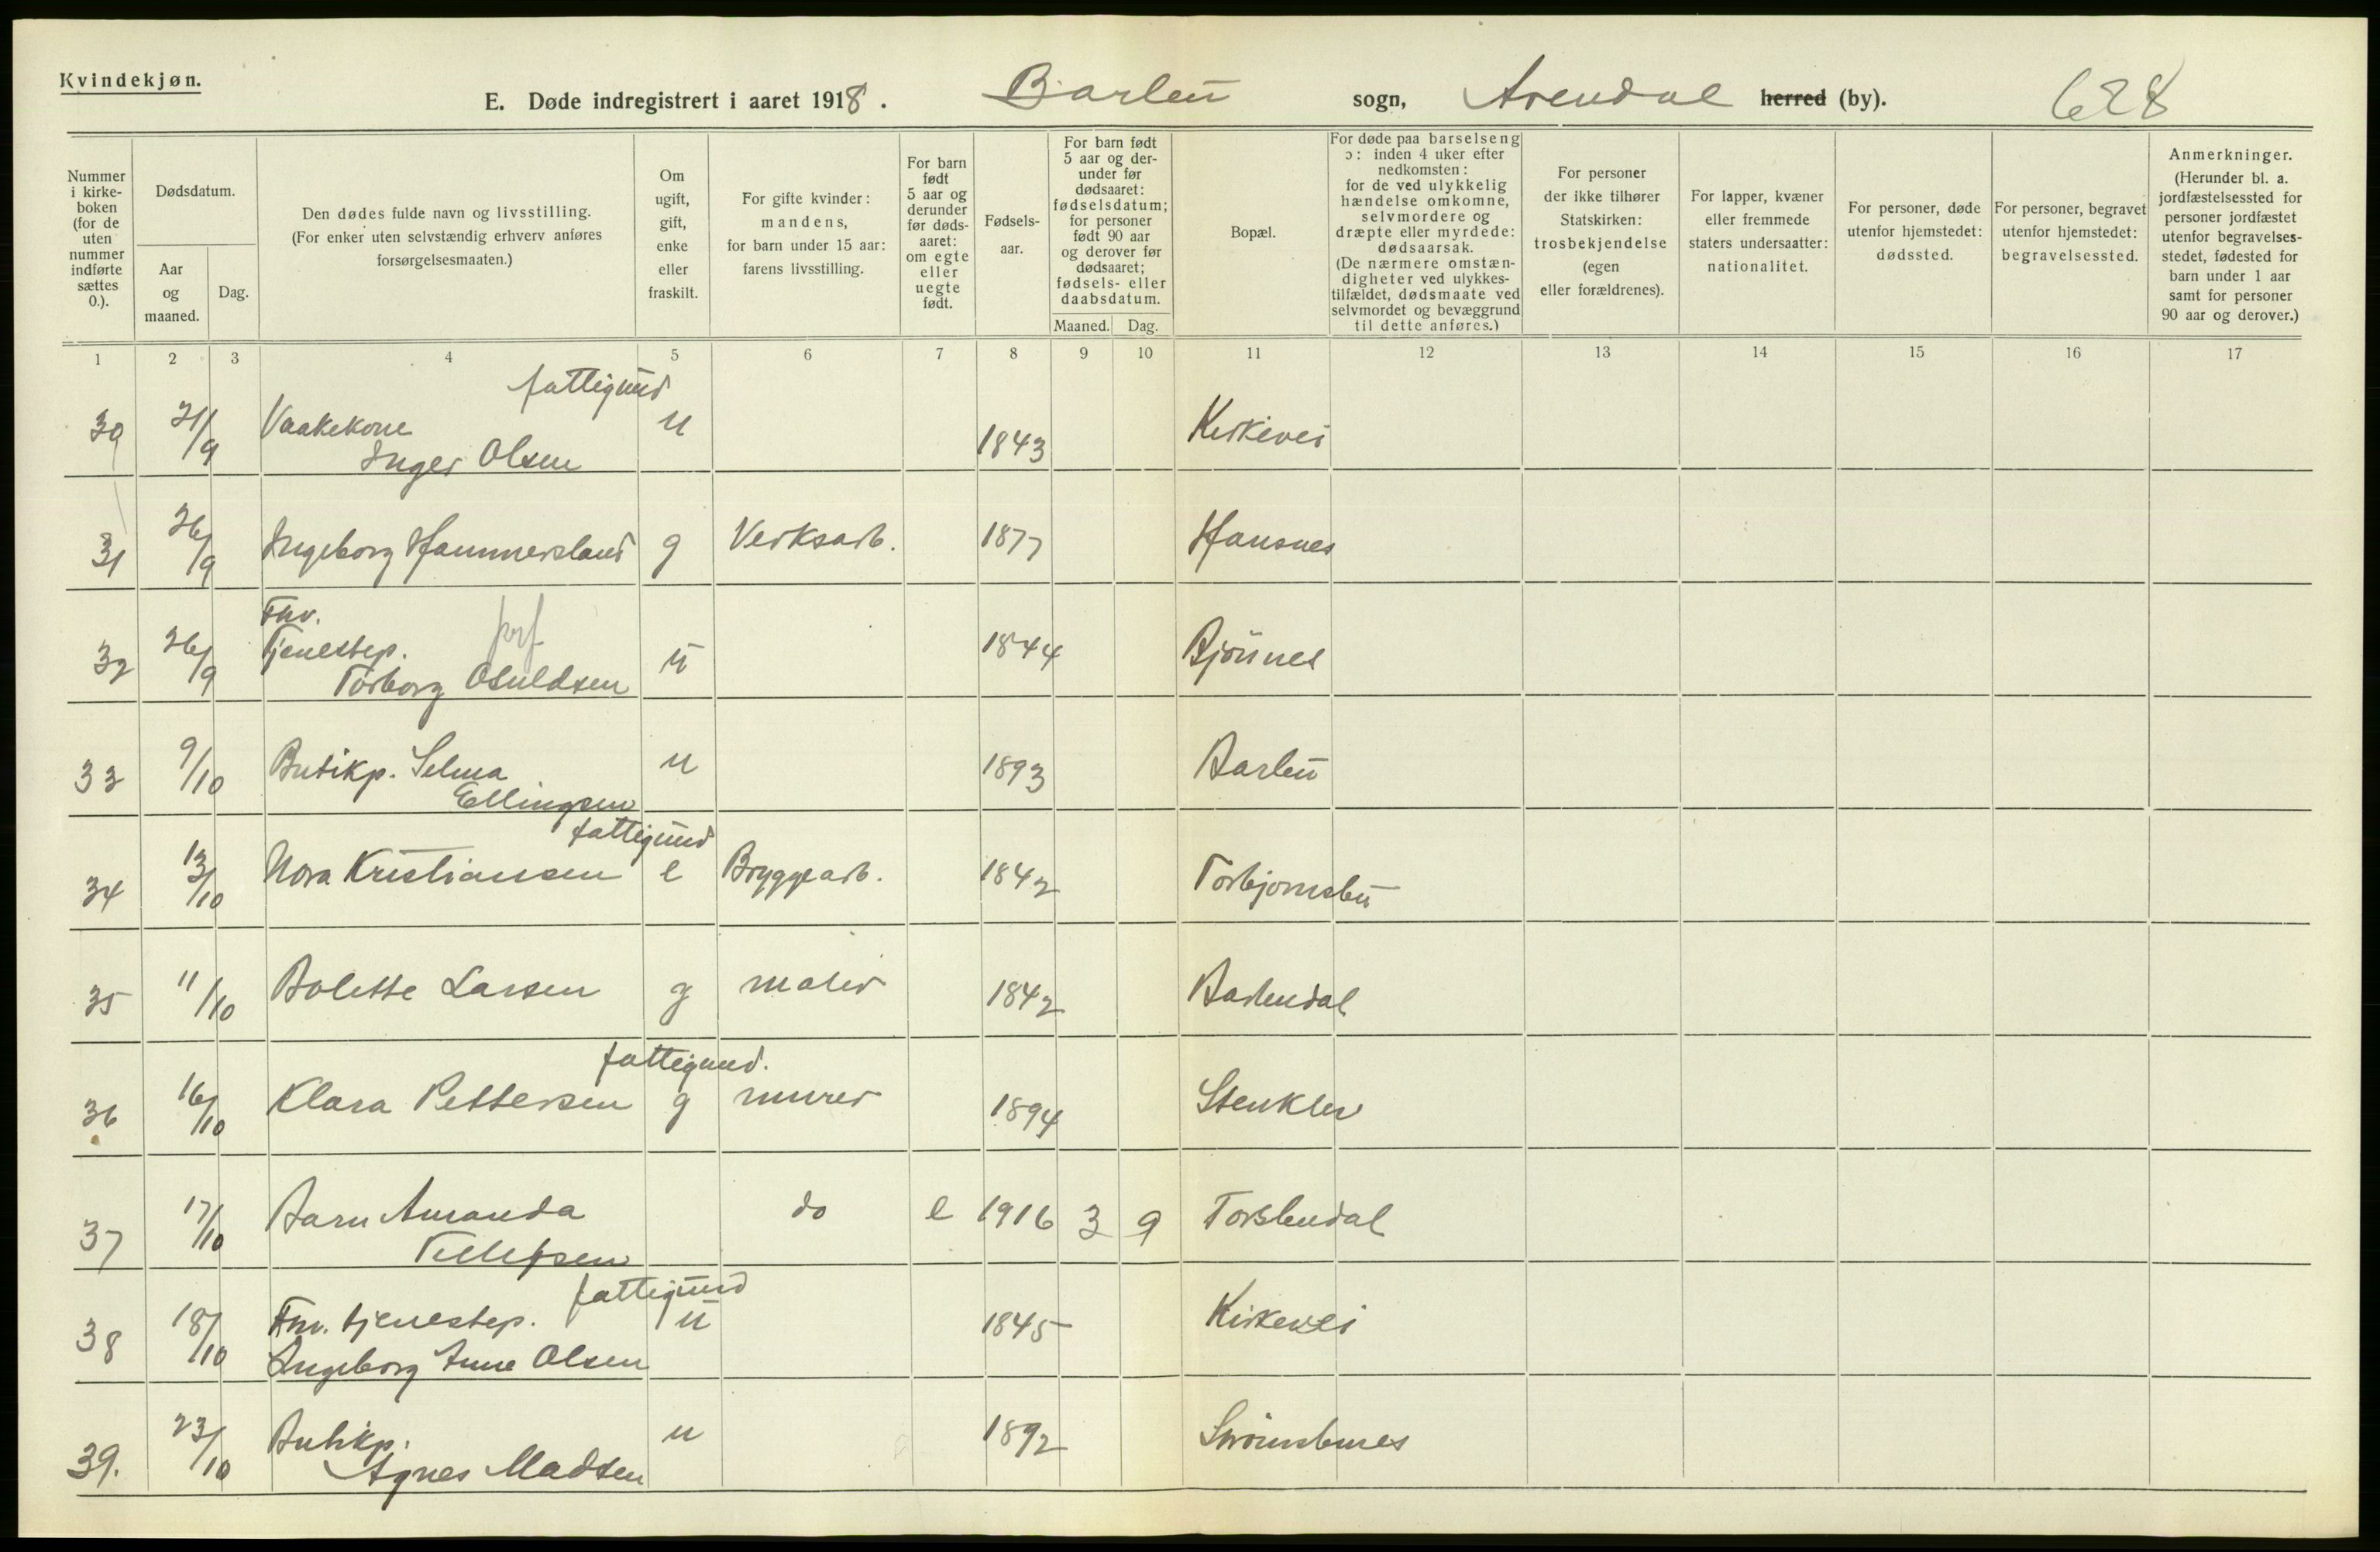 Kvindekjøn.
E. Døde indregistrert i aaret 1918. Barbu sogn, Arendal herred (by). 628
Nummer i kirke- boken (for de uten nummer indførte sættes 0.).
Dødsdatum.
Aar og maaned.
Dag.
Den dødes fulde navn og livsstilling. (For enker uten selvstændig erhverv anføres forsørgelsesmaaten.)
Om ugift, gift, enke eller fraskilt.
For gifte kvinder: mandens, for barn under 15 aar: farens livsstilling.
For barn født 5 aar og derunder før døds- aaret: om egte eller uegte født.
Fødsels- aar.
For barn født 5 aar og der- under før dødsaaret: fødselsdatum; for personer født 90 aar og derover før dødsaaret; fødsels- eller daabsdatum.
Maaned. Dag.
Bopæl.
For døde paa barselseng ɔ: inden 4 uker efter nedkomsten: for de ved ulykkelig hændelse omkomne, selvmordere og dræpte eller myrdede: dødsaarsak. (De nærmere omstæn- digheter ved ulykkes- tilfældet, dødsmaate ved selvmordet og bevæggrund til dette anføres.)
For personer der ikke tilhører Statskirken: trosbekjendelse (egen eller forældrenes).
For lapper, kvæner eller fremmede staters undersaatter: nationalitet.
For personer, døde utenfor hjemstedet: dødssted.
For personer, begravet utenfor hjemstedet: begravelsessted.
Anmerkninger. (Herunder bl. a. jordfæstelsessted for personer jordfæstet utenfor begravelses- stedet, fødested for barn under 1 aar samt for personer 90 aar og derover.)
1 2 3 4 5 6 7 8 9 10 11 12 13 14 15 16 17
fattigund
30 21/9 Vaakekone u 1843 Kirkevei
Inger Olsen
31 26/9 Ingeborg Hammersland g Verksarb. 1877 Hansnes
Fhv.
32 26/9 Tjenestep. u 1844 Bjønnes
Torborg Osuldsen
33 9/10 Butikp. Selma u 1893 Barbu
Ellingsen
fattigund
34 13/10 Nora Kristiansen e Bryggearb. 1842 Torbjørnsbu
35 11/10 Bolette Larsen g maler 1842 Barbudal
fattigund.
36 16/10 Klara Pettersen g murer 1894 Stenklev
37 17/10 Barn Amanda do e 1916 3 9 Torsbudal
Tellefsen
fattigund
38 18/10 Fhv. tjenestep. u 1845 Kirkevei
Ingeborg Anne Olsen
39. 23/10 Butikp. u 1892 Strømsbunes
Agnes Madsen